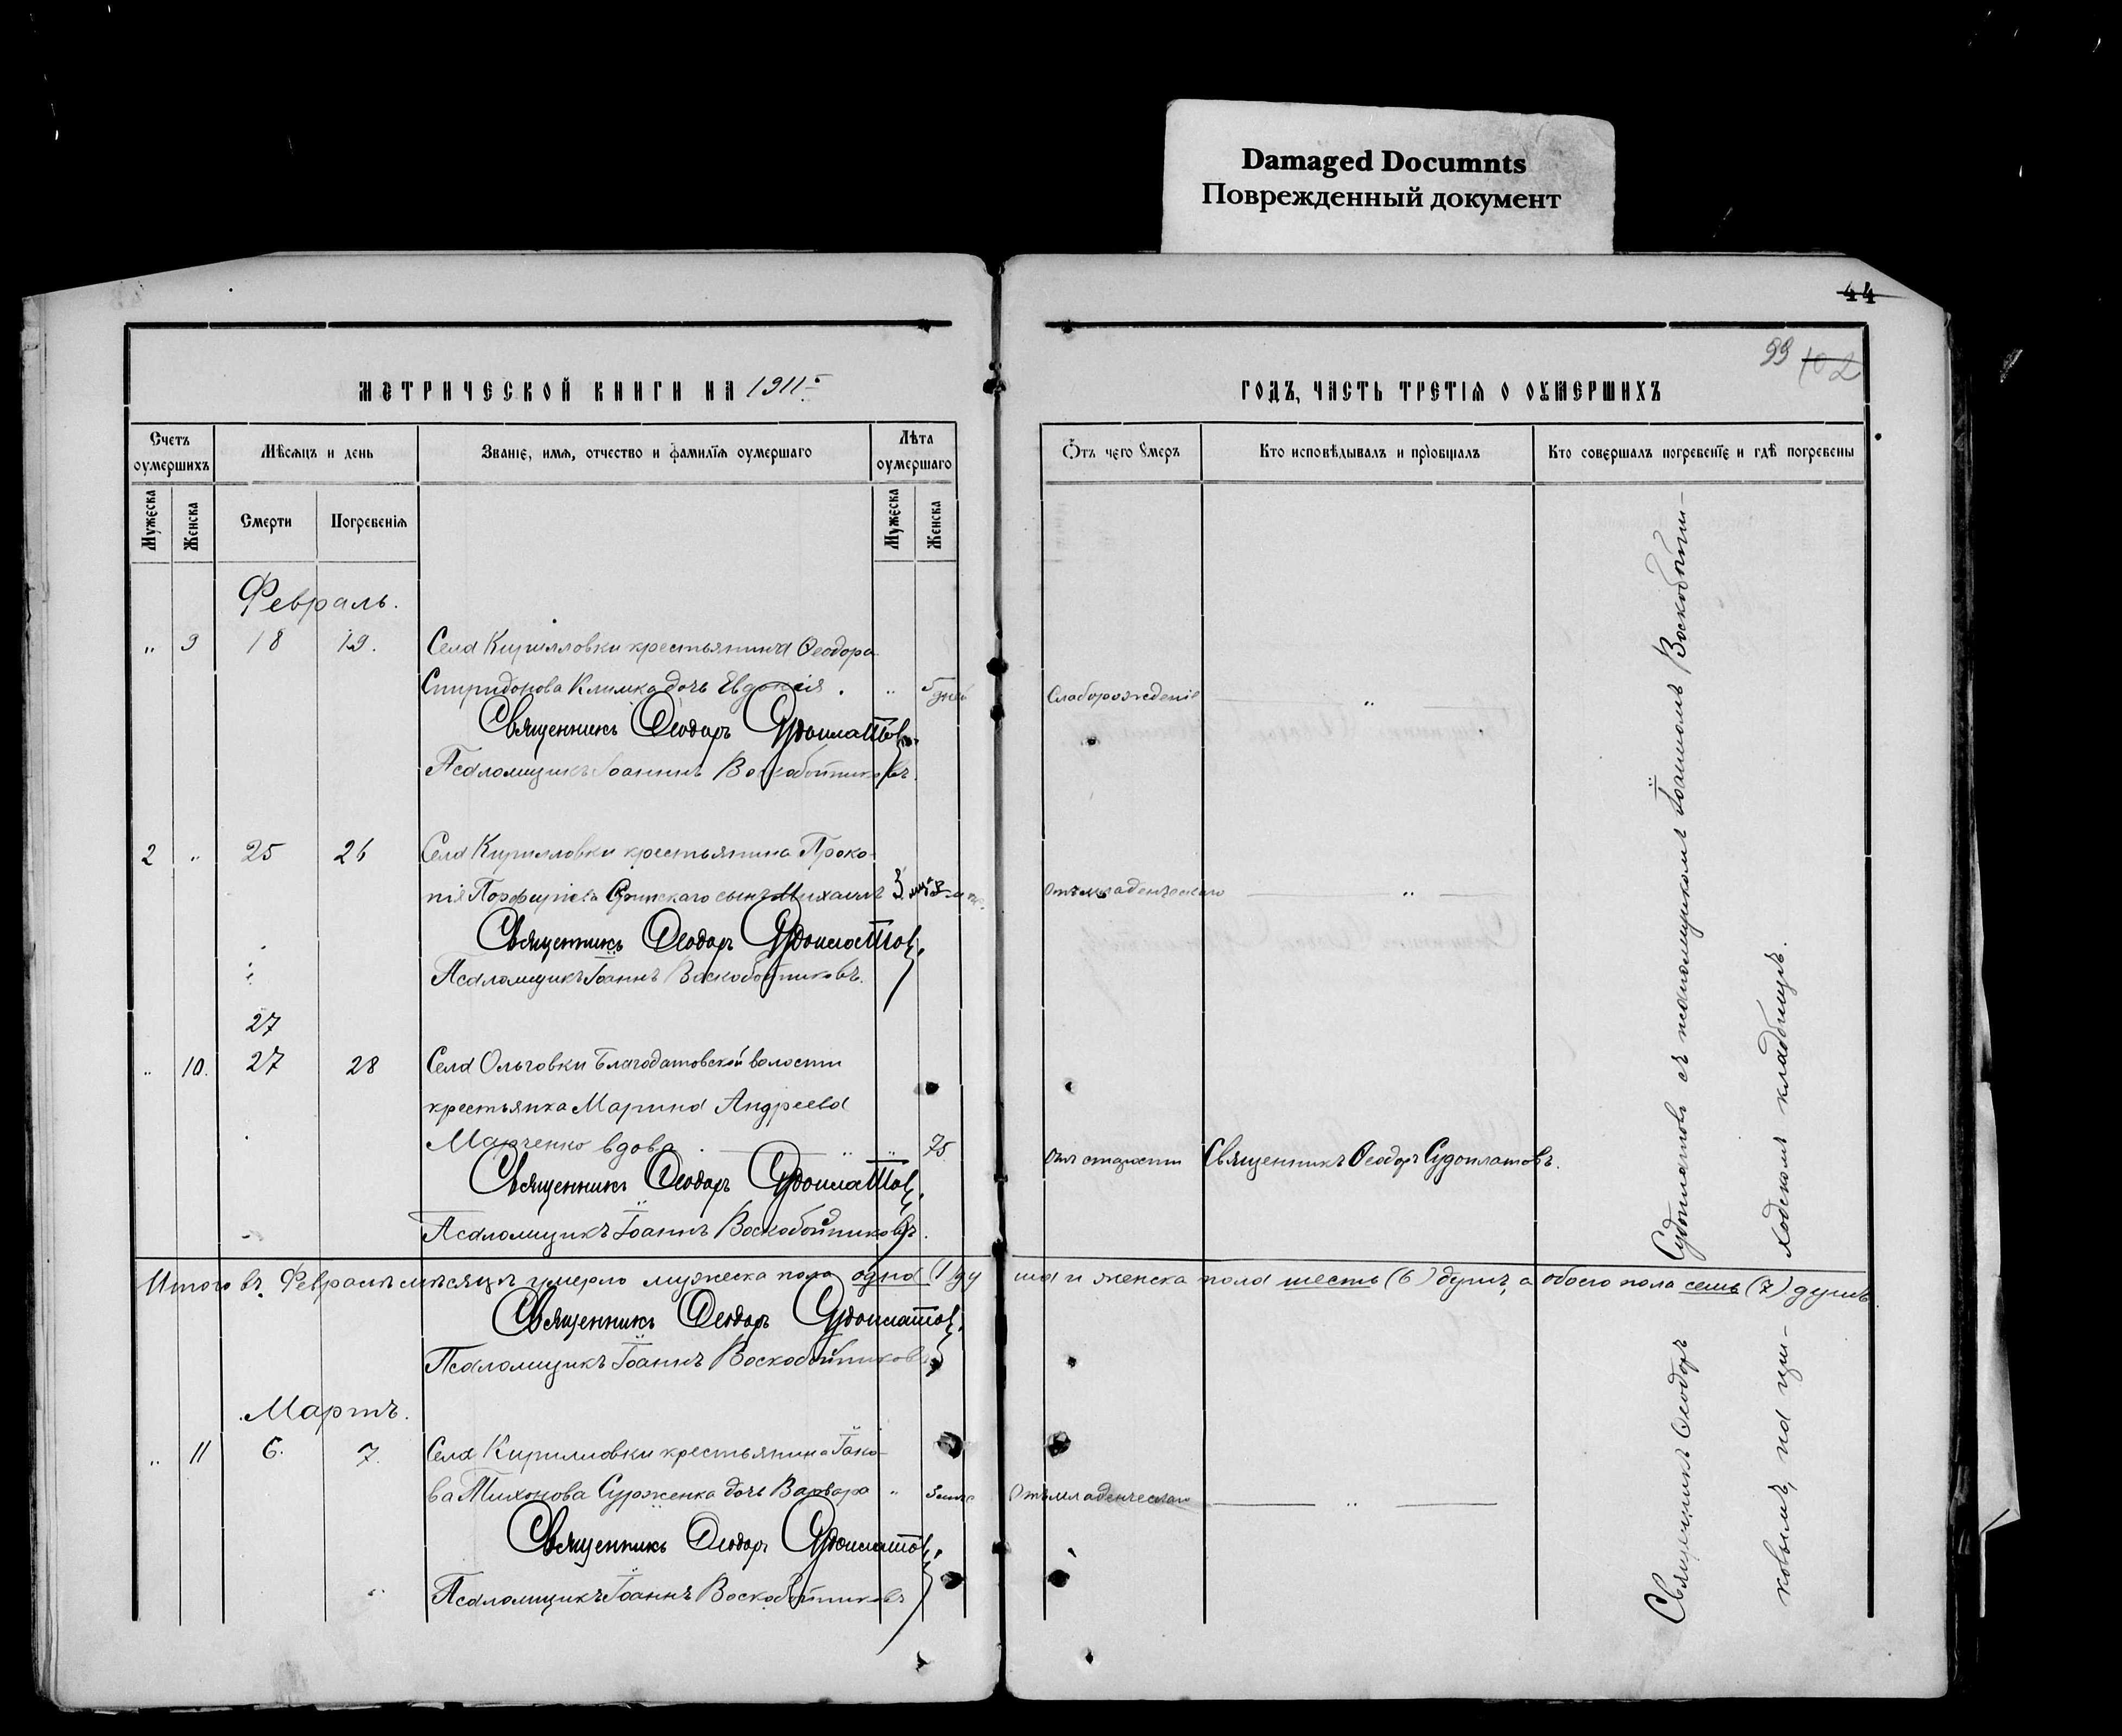 Damaged Documnts
Поврежденный документ
44
99 102
МЕТРИЧЕСКОЙ КНИГИ НА 1911
ГОДЪ, ЧАСТЬ ТРЕТІЯ О ОУМЕРШИХЪ
Счетъ оумершихъ
Мѣсяцъ и день
Званіе, имя, отчество и фамилія оумершаго
Лѣта оумершаго
Отъ чего умеръ
Кто исповѣдывалъ и пріобщалъ
Кто совершалъ погребеніе и гдѣ погребены
Мужеска
Женска
Смерти
Погребенія
Мужеска
Женска
Февраль.
" 9 18 19. Села Кирилловки крестьянина Ѳеодора
Спиридонова Климка дочь Евдокія. " 5 дней Слаборожденіе "
Священникъ Ѳеодоръ Судоплатовъ
Псаломщикъ Іоаннъ Воскобойниковъ.
2 " 25 26 Села Кирилловки крестьянина Проко-
пія Порфиріева сынъ Михаилъ 3 Отъ младенческаго "
Священникъ Ѳеодоръ Судоплатовъ
Псаломщикъ Іоаннъ Воскобойниковъ.
27
" 10. 27 28 Села Ольговки Благодатовской волости
крестьянка Марина Андреева
Марченко вдова " " 75 Отъ старости Священникъ Ѳеодоръ Судоплатовъ.
Священникъ Ѳеодоръ Судоплатовъ
Псаломщикъ Іоаннъ Воскобойниковъ.
Итого въ Февралѣ мѣсяцѣ умерло мужеска пола одна (1) ду ша и женска пола шесть (6) душъ, а обоего пола семь (7) душъ.
Священникъ Ѳеодоръ Судоплатовъ
Псаломщикъ Іоаннъ Воскобойниковъ
Мартъ.
" 11 6. 7. Села Кирилловки крестьянина Іако-
ва Тихонова Сурженка дочь Варвара " Отъ младенческаго "
Священникъ Ѳеодоръ Судоплатовъ
Псаломщикъ Іоаннъ Воскобойниковъ
Священникъ Ѳеодоръ Судоплатовъ съ псаломщикомъ Іоанномъ Воскобойни-
ковымъ, на при-ходскомъ кладбищѣ.